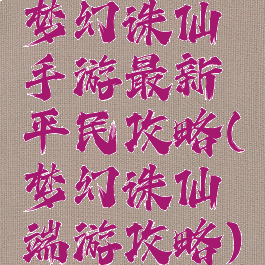 梦幻诛仙
手游最新
平民攻略(
梦幻诛仙
端游攻略)